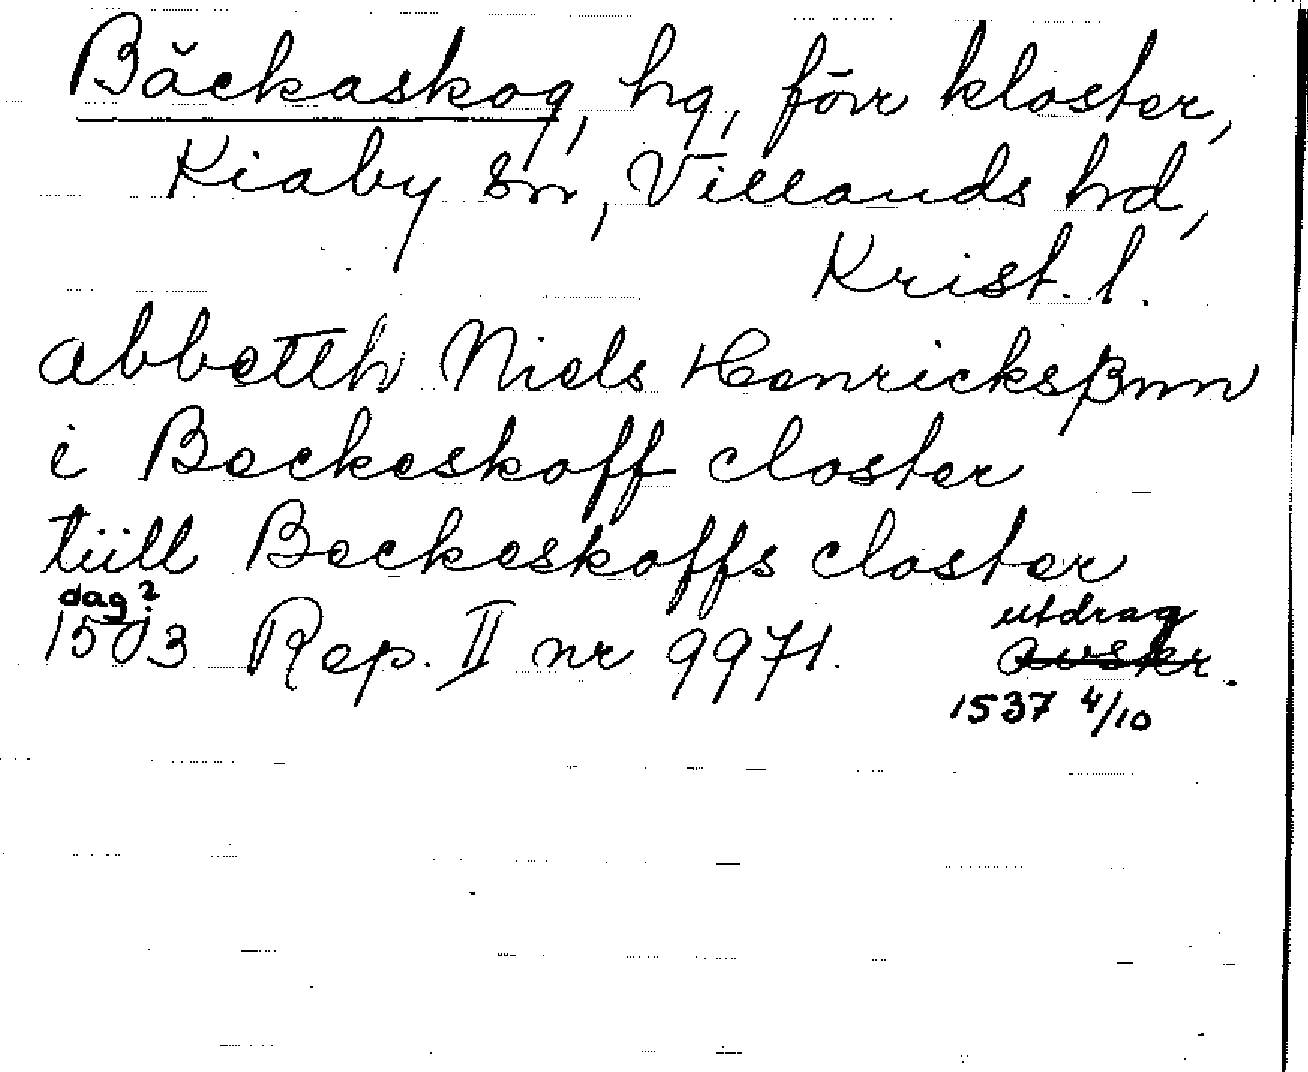 Bäckaskog, hg, förr kloster,
Kiaby sn, Villands hd,
Krist. l.
abbetth Niels Henricksßnn
i Beckeskoff closter
tüill Beckeskoffs closter
dag?
1503 Rep. II nr 9971. utdrag
avskr.
1537 4/10